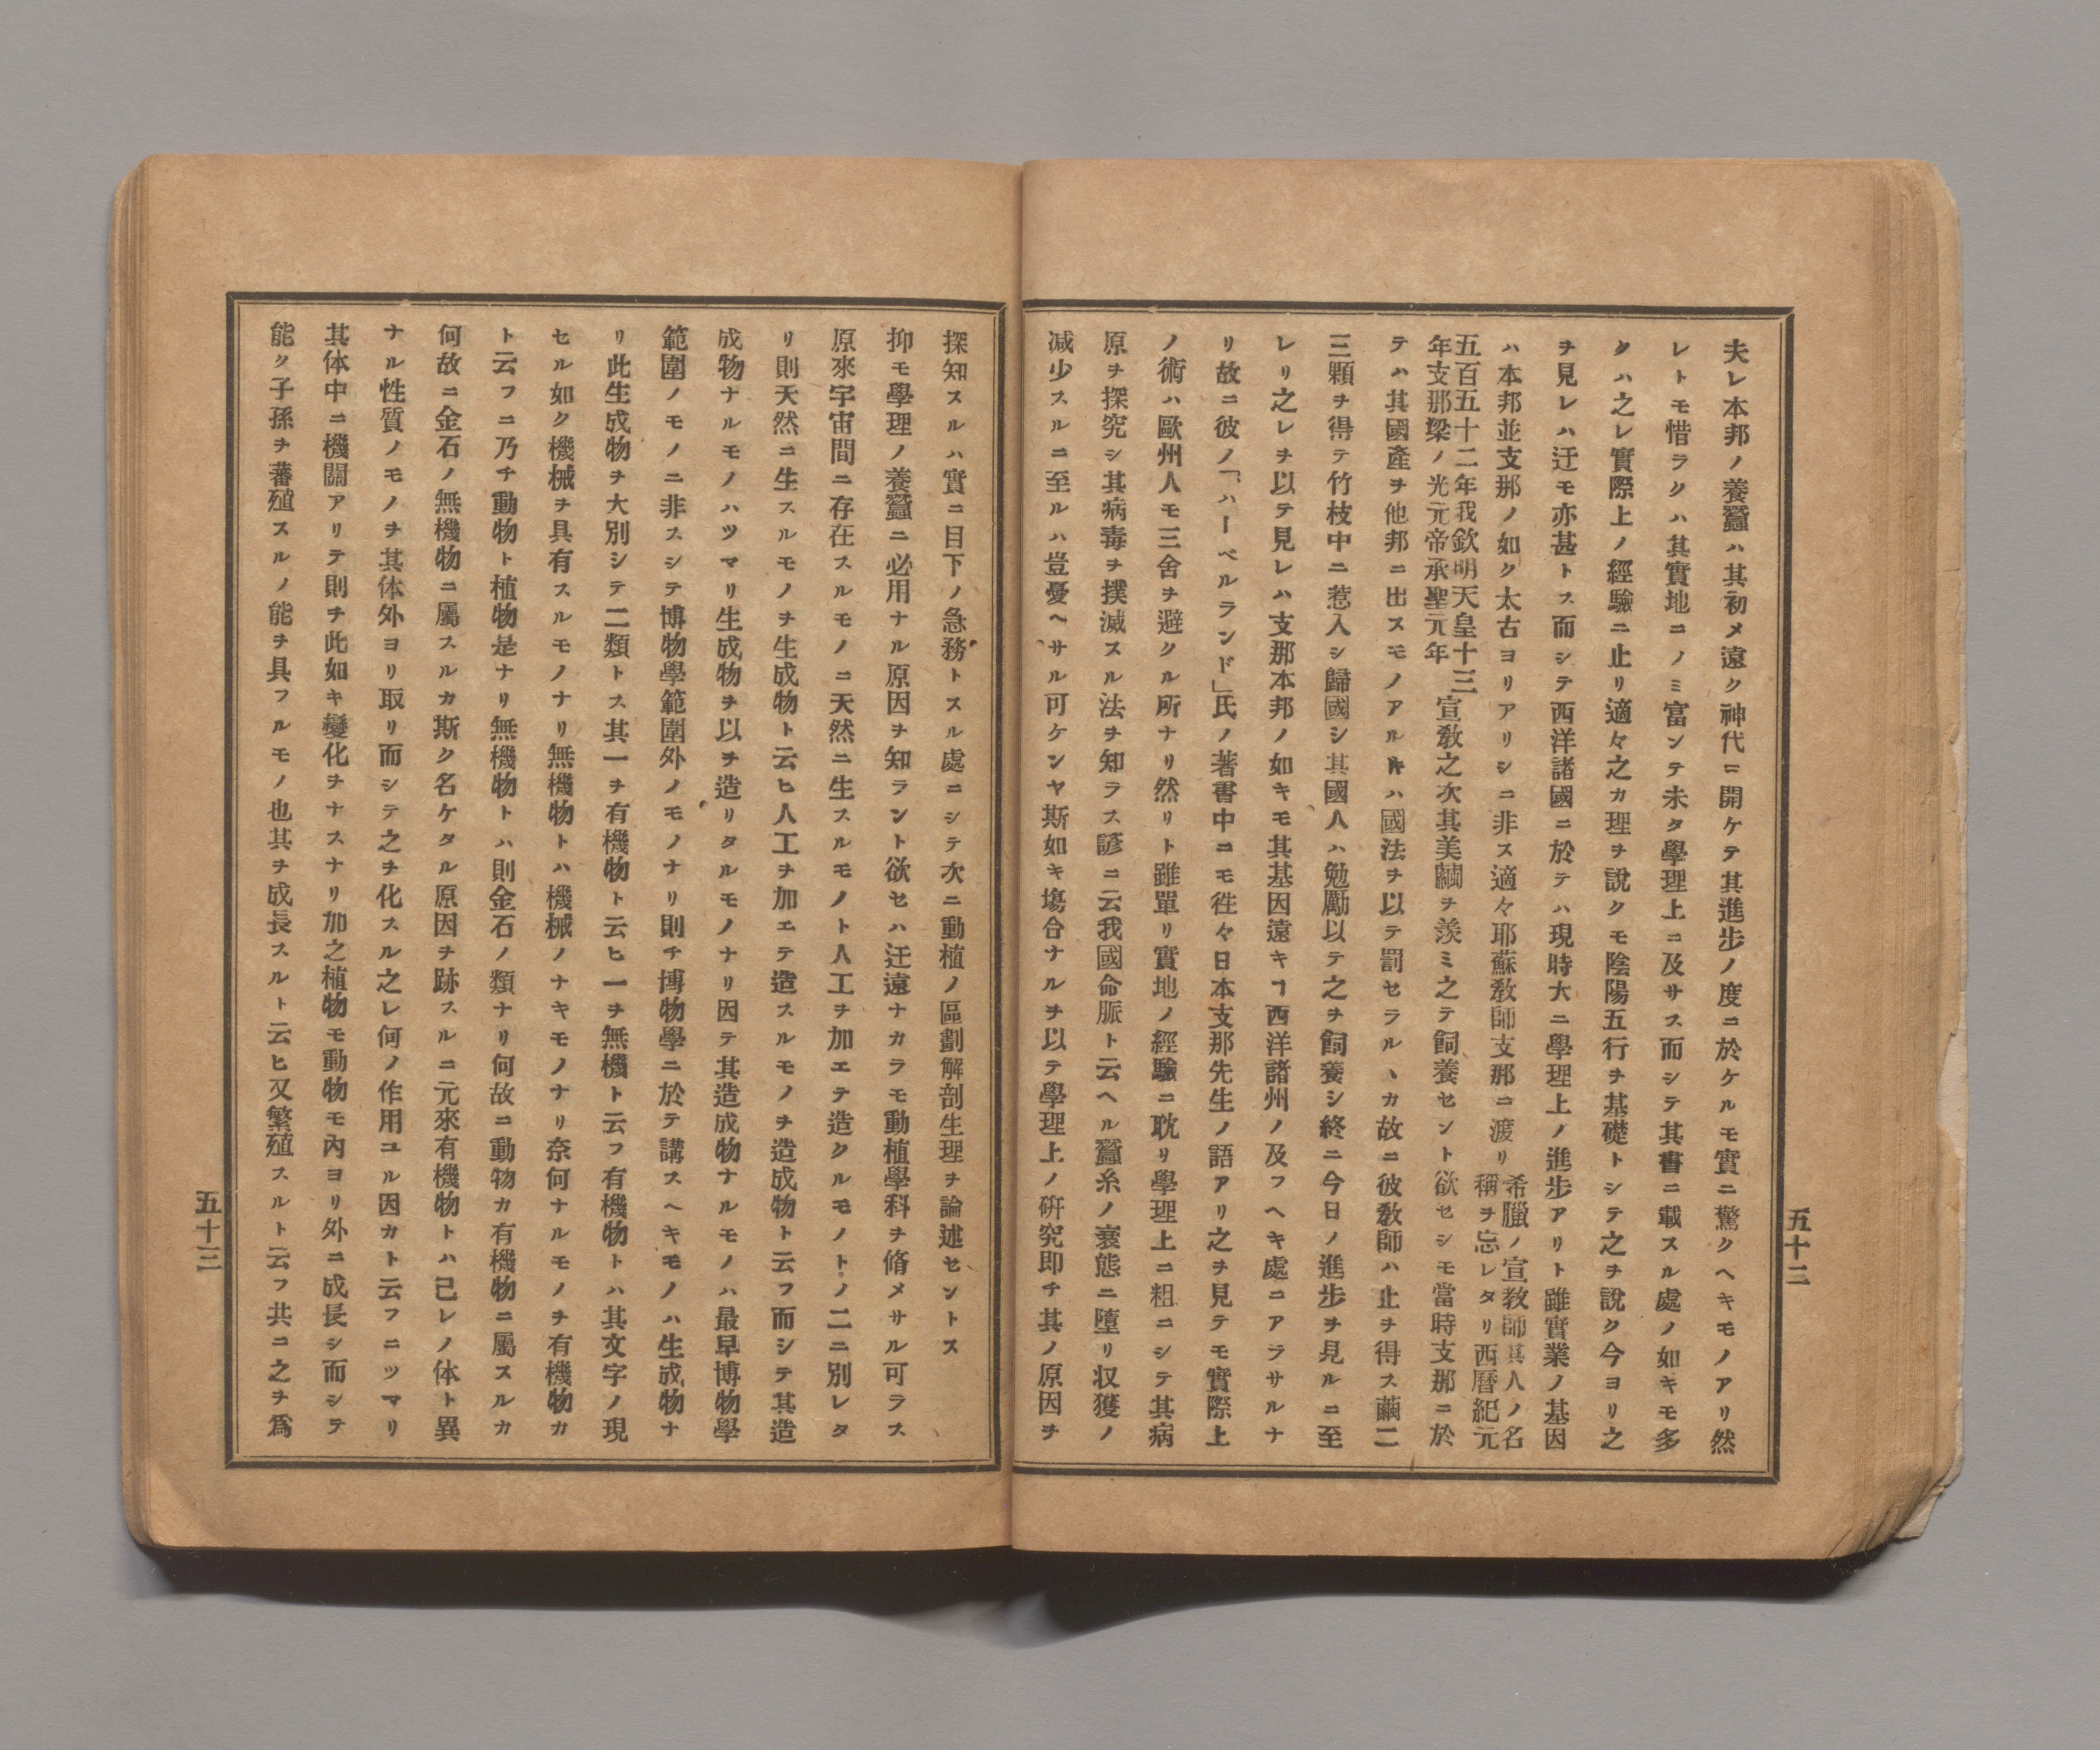 夫レ本邦ノ養蠶ハ其初メ遠ク神代ニ開ケテ其進步ノ度ニ於ケルモ實ニ驚クヘキモノアリ然
レトモ惜ラクハ其實地ニノミ富ンテ未タ學理上ニ及サス而シテ其書ニ載スル處ノ如キモ多
クハ之レ實際上ノ經驗ニ止リ適々之カ理ヲ說クモ陰陽五行ヲ基礎トシテ之ヲ說ク今ヨリ之
ヲ見レハ迂モ亦甚トス而シテ西洋諸國ニ於テハ現時大ニ學理上ノ進步アリト雖實業ノ基因
ハ本邦並支那ノ如ク太古ヨリアリシニ非ス適々耶蘇敎師支那ニ渡リ希臘ノ宣敎師其人ノ名
稱ヲ忘レタリ西曆紀元
五百五十二年我欽明天皇十三
年支那梁ノ光元帝承聖元年宣敎之次其美繭ヲ羨ミ之テ飼養セント欲セシモ當時支那ニ於
テハ其國產ヲ他邦ニ出スモノアルㇳキハ國法ヲ以テ罰セラルヽカ故ニ彼敎師ハ止ヲ得ス繭二
三顆ヲ得テ竹枝中ニ惹入シ歸國シ其國人ハ勉勵以テ之ヲ飼養シ終ニ今日ノ進步ヲ見ルニ至
レリ之レヲ以テ見レハ支那本邦ノ如キモ其基因遠キヿ西洋諸州ノ及フヘキ處ニアラサルナ
リ故ニ彼ノ「ハーベルランド」氏ノ著書中ニモ徃々日本支那先生ノ語アリ之ヲ見テモ實際上
ノ術ハ歐州人モ三舍ヲ避クル所ナリ然リト雖單リ實地ノ經驗ニ耽リ學理上ニ粗ニシテ其病
原ヲ探究シ其病毒ヲ撲滅スル法ヲ知ラス諺ニ云我國命脈ト云ヘル蠶糸ノ衰態ニ墮リ収獲ノ
减少スルニ至ルハ豈憂ヘサル可ケンヤ斯如キ塲合ナルヲ以テ學理上ノ硏究即チ其ノ原因ヲ
五十二
探知スルハ實ニ目下ノ急務トスル處ニシテ次ニ動植ノ區劃解剖生理ヲ論述セントス
抑モ學理ノ養蠶ニ必用ナル原因ヲ知ラント欲セハ迂遠ナカラモ動植學科ヲ脩メサル可ラス
原來宇宙間ニ存在スルモノニ天然ニ生スルモノト人工ヲ加エテ造クルモノトノ二ニ別レタ
リ則天然ニ生スルモノヲ生成物ト云ヒ人工ヲ加エテ造スルモノヲ造成物ト云フ而シテ其造
成物ナルモノハツマリ生成物ヲ以ヲ造リタルモノナリ因テ其造成物ナルモノハ最早博物學
範圍ノモノニ非スシテ博物學範圍外ノモノナリ則チ博物學ニ於テ講スヘキモノハ生成物ナ
リ此生成物ヲ大別シテ二類トス其一ヲ有機物ト云ヒ一ヲ無機ト云フ有機物トハ其文字ノ現
セル如ク機械ヲ具有スルモノナリ無機物トハ機械ノナキモノナリ奈何ナルモノヲ有機物カ
ト云フニ乃チ動物ト植物是ナリ無機物トハ則金石ノ類ナリ何故ニ動物カ有機物ニ屬スルカ
何故ニ金石ノ無機物ニ屬スルカ斯ク名ケタル原因ヲ跡スルニ元來有機物トハ己レノ体ト異
ナル性質ノモノヲ其体外ヨリ取リ而シテ之ヲ化スル之レ何ノ作用ユル因カト云フニツマリ
其体中ニ機關アリテ則チ此如キ變化ヲナスナリ加之植物モ動物モ內ヨリ外ニ成長シ而シテ
能ク子孫ヲ蕃殖スルノ能ヲ具フルモノ也其ヲ成長スルト云ヒ又繁殖スルト云フ共ニ之ヲ爲
五十三